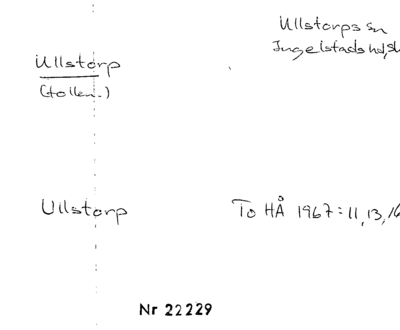 Ullstorps sn
Ingelstads hd, sk
Ullstorp
(tollen-)
Ullstorp
To HÅ 1967: 11, 13, 16
Nr 22229